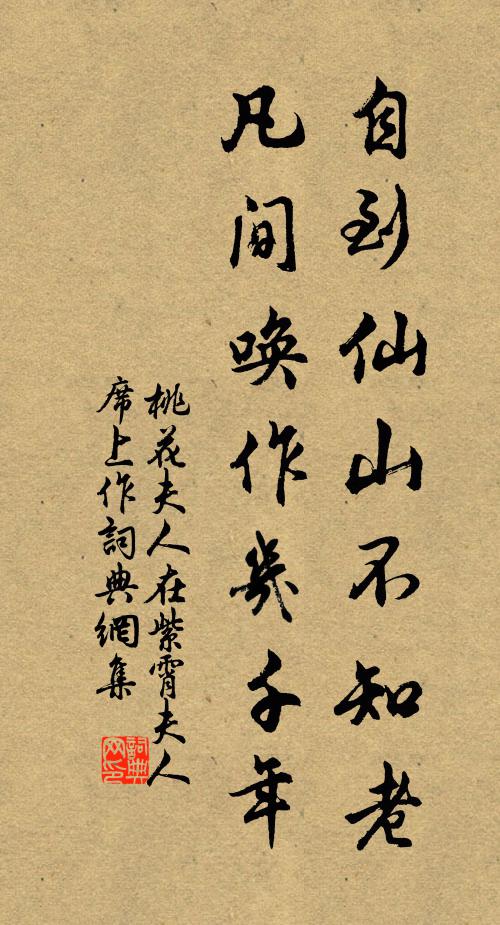 自到仙山不知老
凡间唤作几千年
桃花夫人在紫霄夫人
席上作詞典網集
詞典网印